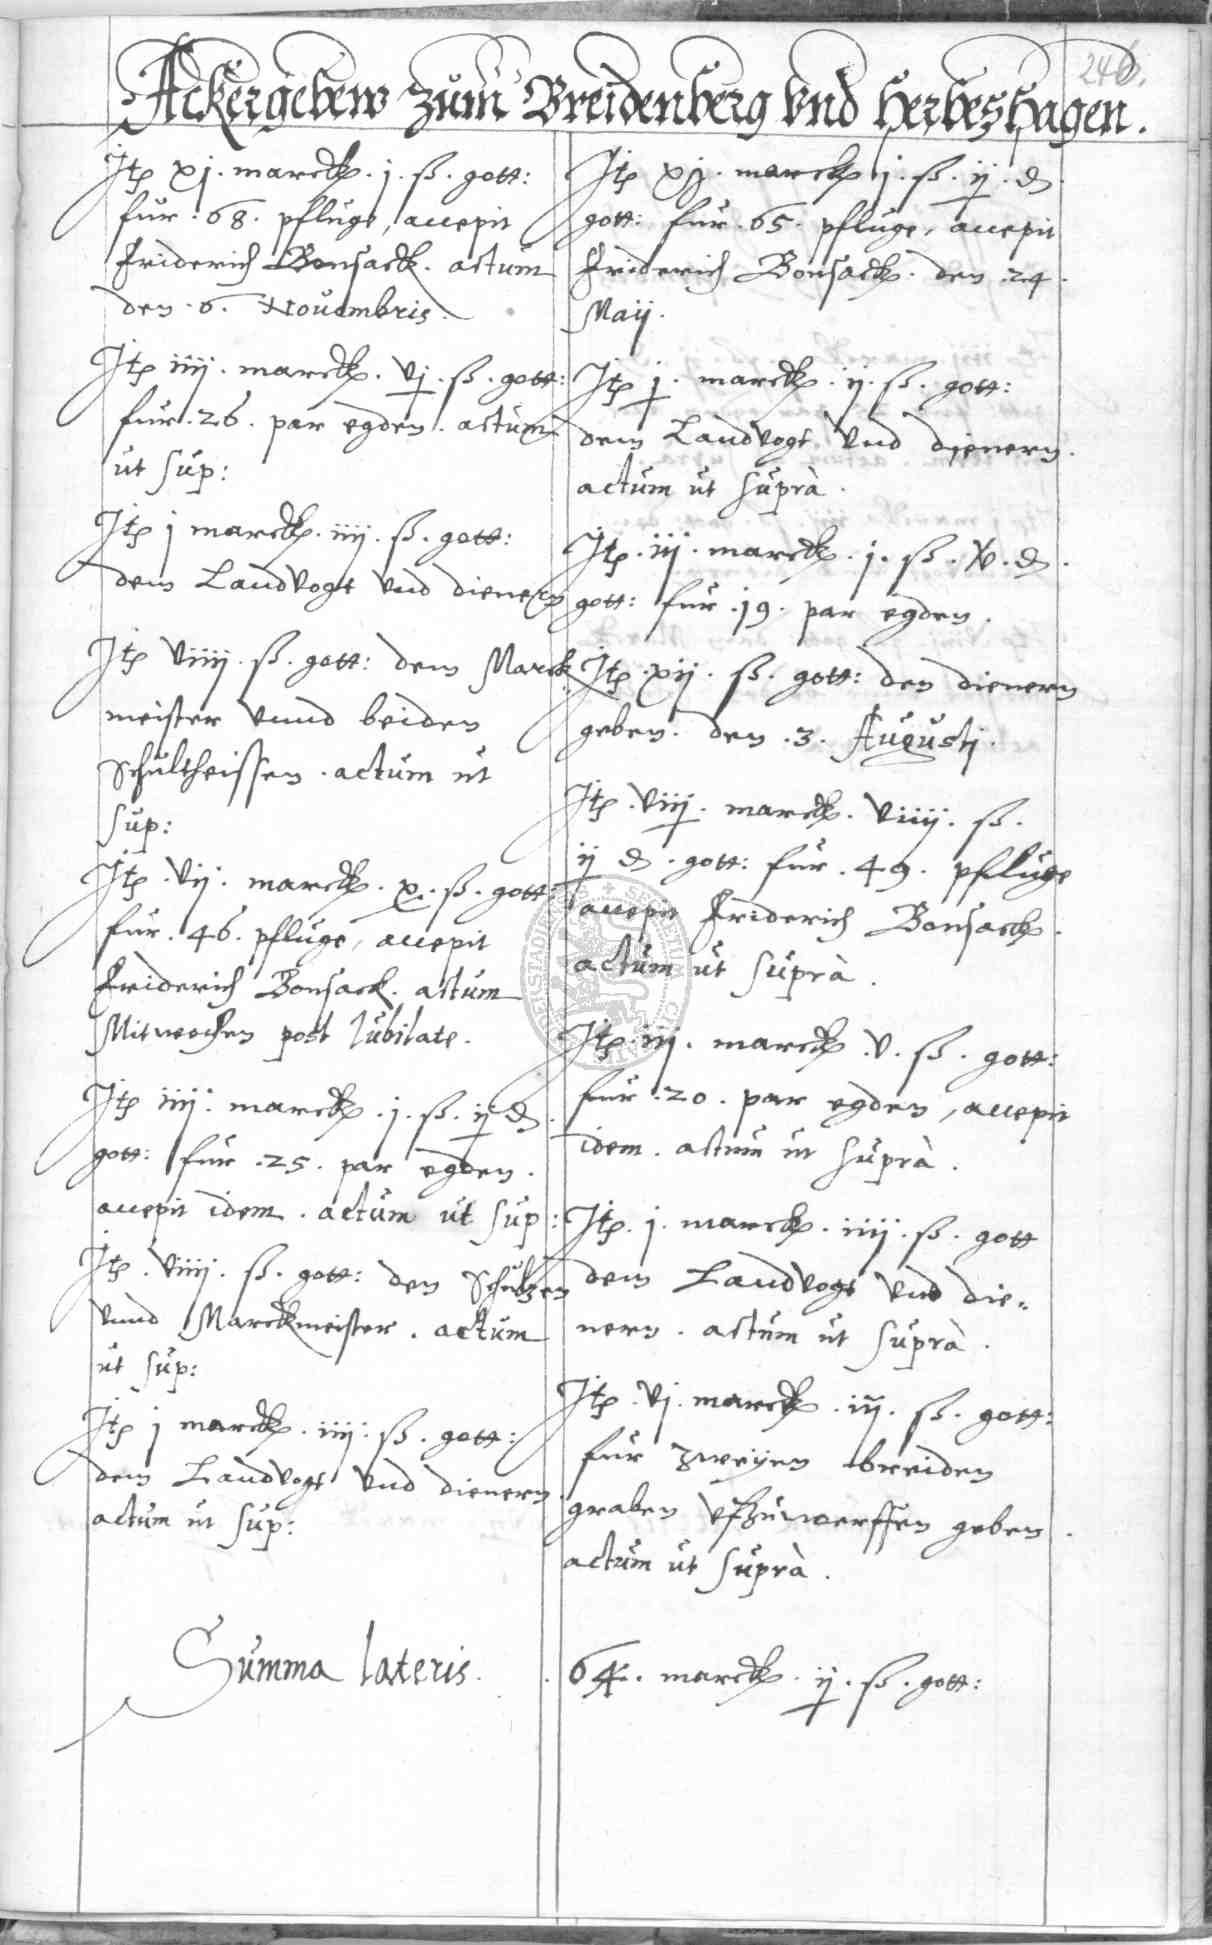 246.
Ackergebew zum Breidenberg vnd Herbeshagen.
Itp xj. marck. j. ß. gott:
fur .68. pfluge, accepit
Friderich Bonsack. actum
den .6. Nouembris.
Itp iiij. marck. vj. ß. gott:
fur .26. par egden. actum
ut sup:
Itp j marck. iiij. ß. gott:
dem Landvogt vnd dienern
Itp viiij. ß. gott: dem Marck
meister vnnd beiden
Schultheissen. actum ut
sup:
Itp .vij. marck. x. ß. gott:
fur .46. pfluge, accepit
Friderich Bonsack. actum
Mitwochen post Iubilate.
Itp iiij. marck. j. ß. ij ₰.
gott: fur .25. par egden.
accepit idem. actum ut sup:
Itp. viiij. ß. gott: den Schultzen
vnnd Marckmeister. actum
ut sup:
Itp j marck. iiij. ß. gott:
dem Landvogt vnd dienern
actum ut sup:
Itp xj. marck j. ß. ij. ₰.
gott: fur .65. pfluge, accepit
Friderich Bonsack. den .24.
Maij.
Itp j. marck. ij. ß. gott:
dem Landvogt vnd dienern.
actum ut suprà.
Itp. iij. marck. j. ß. v. ₰.
gott: fur .19. par egden.
Itp. xij. ß. gott: den dienern
geben. den .3. Augustj.
Itp .viij. marck. viiij. ß.
ij ₰. gott: fur .49. pfluge
accepit Friderich Bonsack.
actum ut suprà.
Itp. iij. marck. v. ß. gott:
fur .20. par egden, accepit
idem. actum ut suprà.
Itp. j. marck. iiij. ß. gott
dem Landvogt vnd die-
nern. actum ut suprà.
Itp. vj. marck. iij. ß. gott:
fur zweyen breiden
graben vfzuwerffen geben.
actum ut suprà.
Summa lateris. 64. marck. ij. ß. gott: